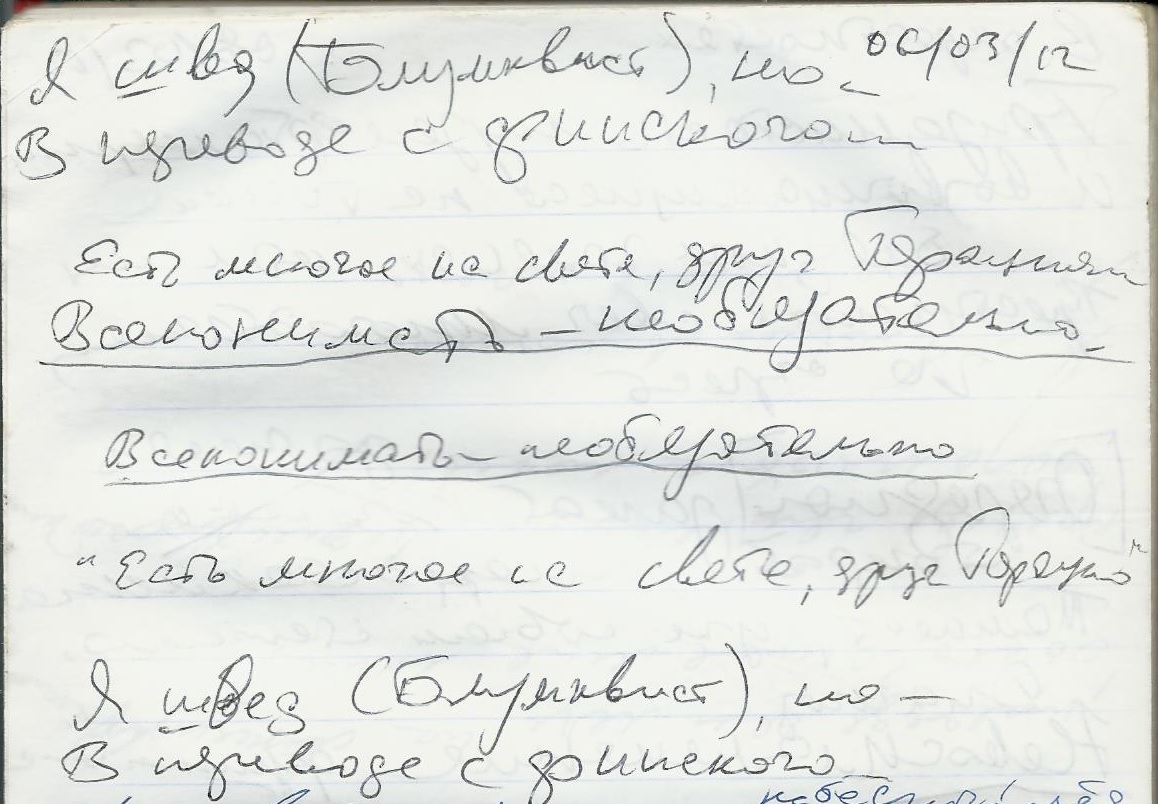 Я швед (Блумквист), но – 06/03/12
В переводе с финского –
Есть многое на свете, друг Горацио –
Всепонимать – необязательно.
Всепонимать – необязательно
"Есть многое на свете, друг Горацио"
Я швед (Блумквист), но –
В переводе с финского –